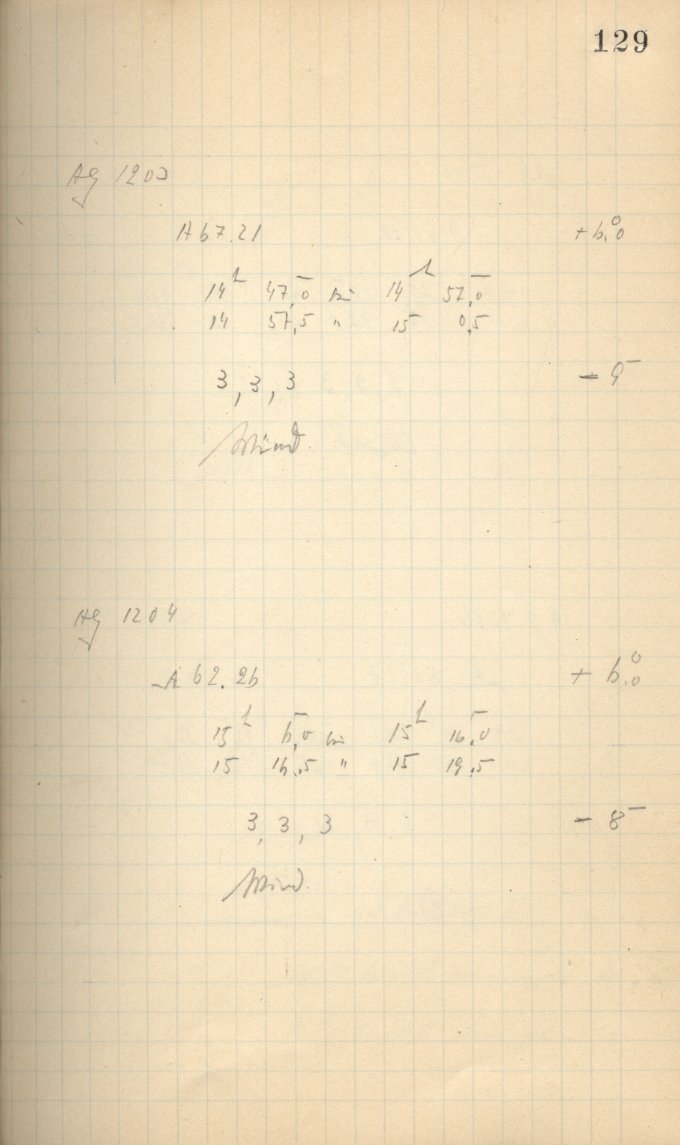 129
AG 1203
A 67.21 +6.°0
14ʰ 47,0 bis 14ʰ 57,0
14 57,5 " 15 0,5
3, 3, 3 - 9
Wind.
AG 1204
A 62.26 + 6.°0
15ʰ 6,0 bis 15ʰ 16,0
15 16,5 " 15 19,5
3, 3, 3 - 8
Wind.